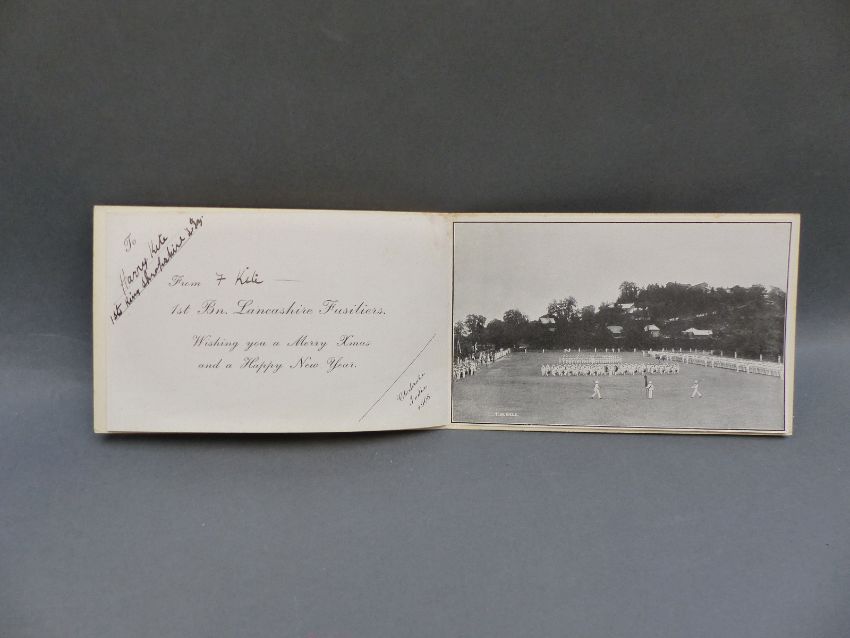 To
Harry Kite
1st King Shropshire L.I.
From F Kite
1st Bn. Lancashire Fusiliers.
Wishing you a Merry Xmas
and a Happy New Year.
India